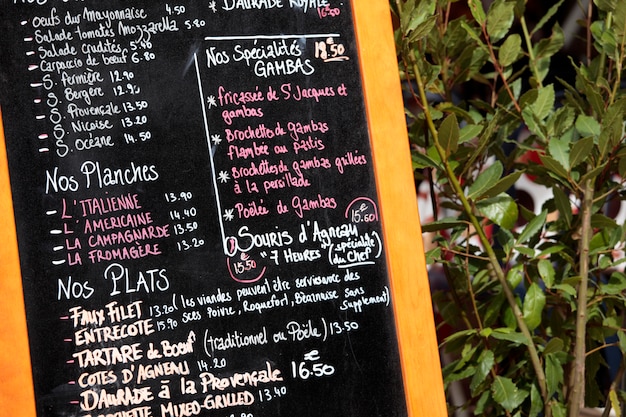 Oeufs durs Mayonnaise
Salade tomates Mozzarella 4.50
Salade crudités 5.40
Carpaccio de boeuf 6.80
S. fermière 12.90
S. Bergère 12.90
S. Provençale 13.50
S. Niçoise 13.20
S. Océane 14.50
Nos Planches
L'ITALIENNE 13.90
L'AMERICAINE 14.40
LA CAMPAGNARDE 13.50
LA FROMAGÈRE 13.20
Nos PLATS
FAUX FILET 13.20 (les viandes peuvent être servies avec des
ENTRECOTE 15.90 Sces Poivre, Roquefort, Béarnaise Sans supplément)
TARTARE de Boeuf (traditionnel ou Poêlé) 13.50
COTES D'AGNEAU 14.20
DAURADE à la Provençale € 16.50
MIXED-GRILLED 13.40
DAURADE ROYALE 16.50
Nos Spécialités 18.50 €
GAMBAS
* fricassée de St Jacques et
gambas
* Brochettes de gambas
flambée au pastis
* Brochettes de gambas grillées
à la persillade
* Poêlée de Gambas € 15.50
Souris d'Agneau
7 Heures (spécialité du Chef)
15.50 €